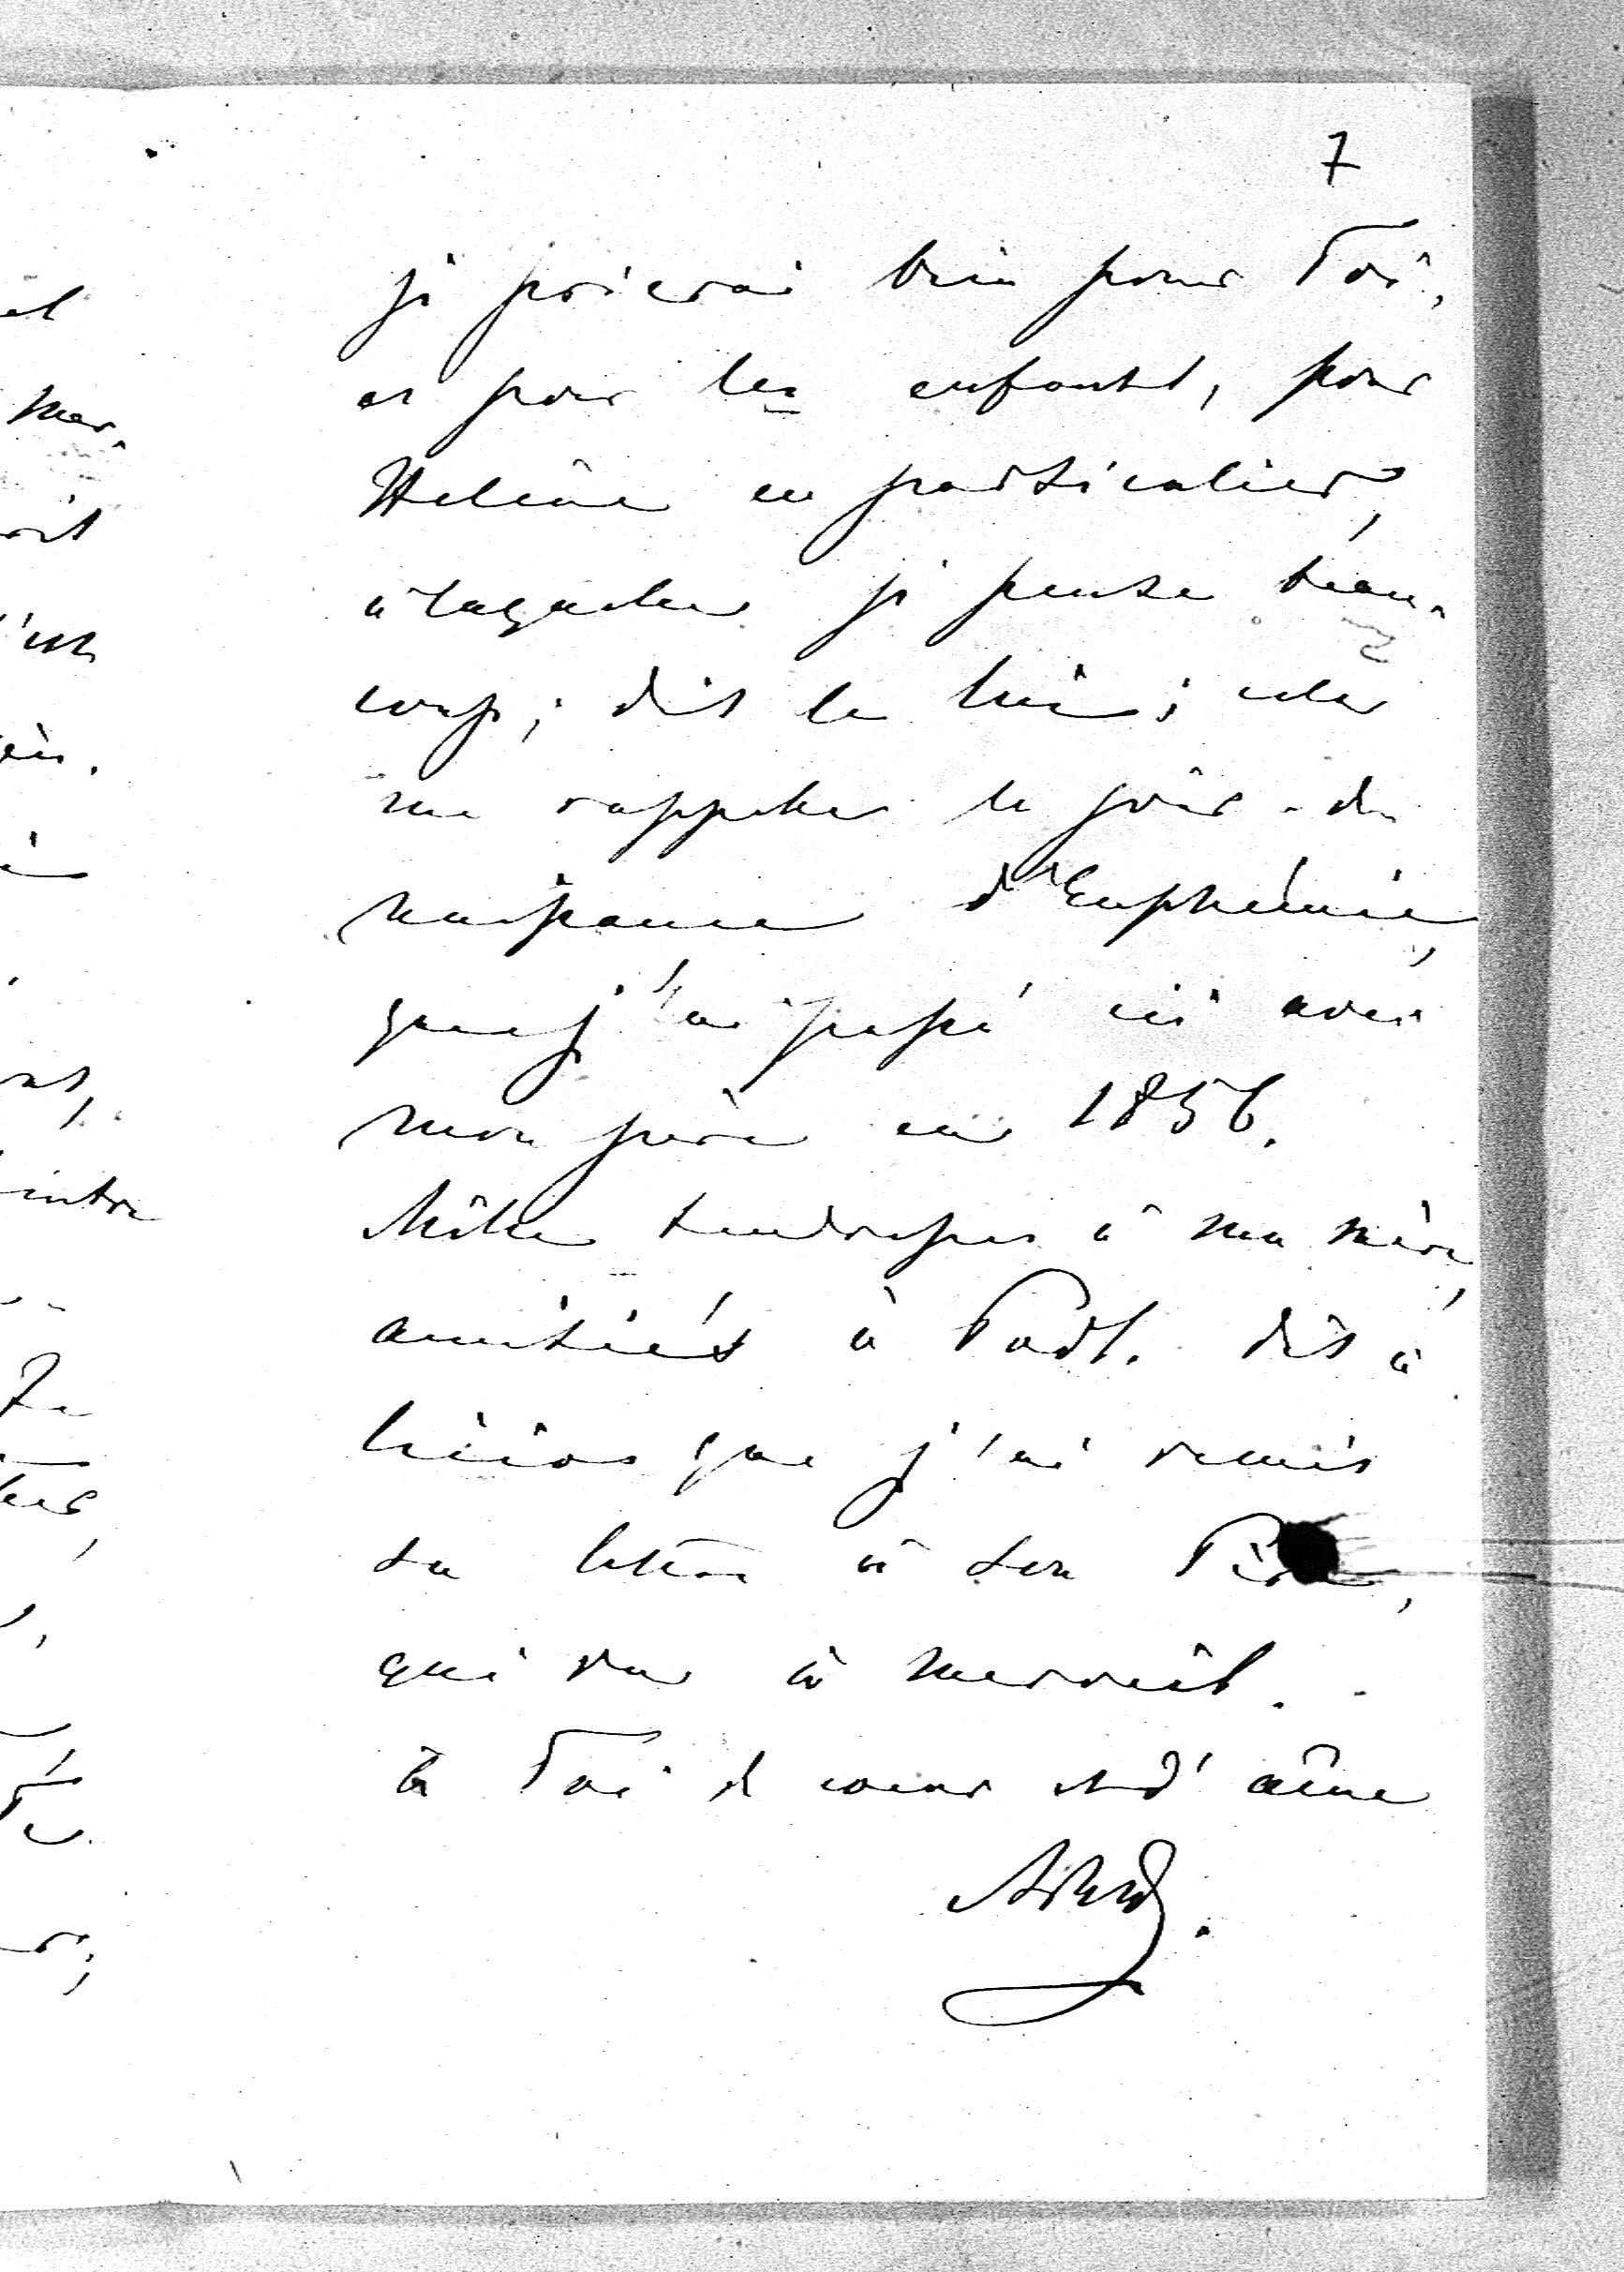 7
je prierai bien pour Toi,
et pour les enfants, pour
Helène en particulier,
à laquelle je pense beau-
coup; dis le lui; cela
me rappelle le jour de
naissance d'Euphémie,
que j'ai passé ici avec
mon père en 1856.
Mille tendresses à ma mère,
amitiés à Dis à
que j'ai remis
sa lettre à son Père,
qui va à merveil.
à Toi de coeur et d'âme